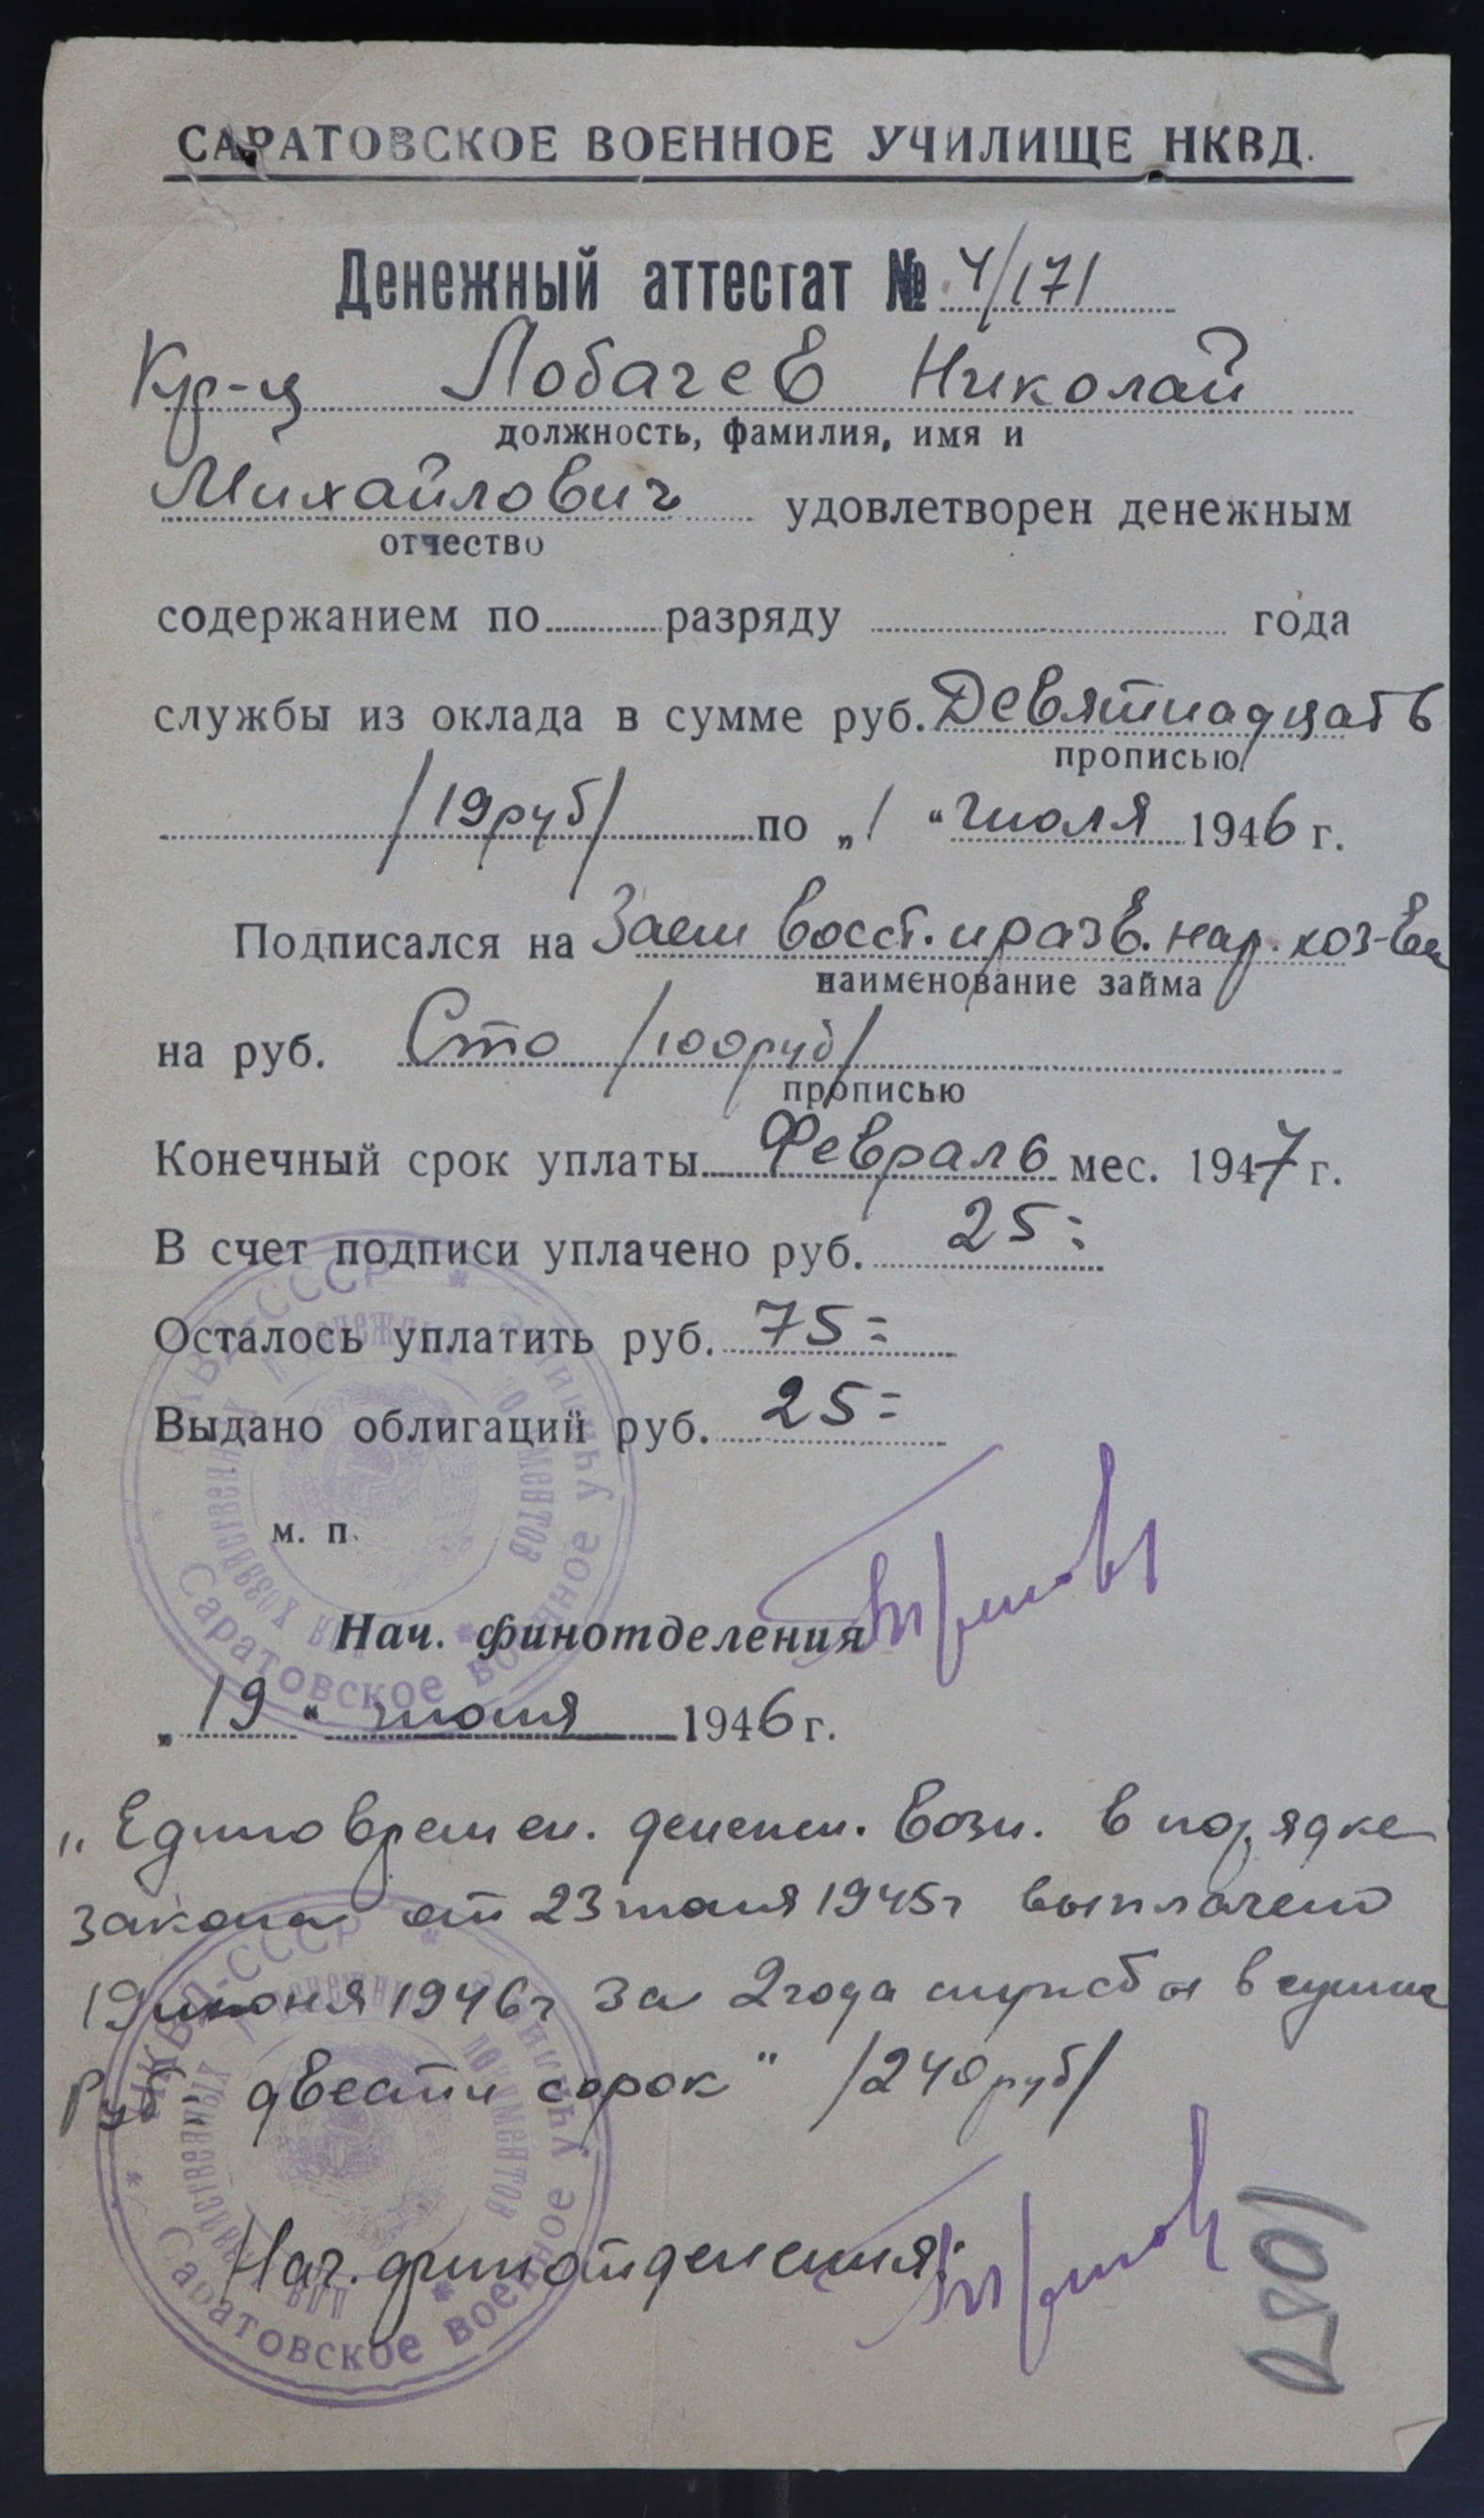 САРАТОВСКОЕ ВОЕННОЕ УЧИЛИЩЕ НКВД.
Денежный аттестат № 4/171
Кур-ц Лобачев Николай
должность, фамилия, имя и
Михайлович удовлетворен денежным
отчество
содержанием по разряду года
службы из оклада в сумме руб. Девятнадцать
прописью
/19 руб/ по „1“ июля 1946 г.
Подписался на Заем восст. и разв. нар. хоз-ва
наименование займа
на руб. Сто /100 руб/
прописью
Конечный срок уплаты Февраль мес. 1947 г.
В счет подписи уплачено руб. 25=
Осталось уплатить руб. 75=
Выдано облигаций руб. 25=
м. п.
Нач. финотделения
„19“ июня 1946 г.
„Единовремен. денежн. возн. в порядке
закона от 23 июня 1945г выплачено
19 июня 1946г за 2 года службы в сумме
Руб: двести сорок" /240 руб/
Нач. финотделения:
НКВД-СССР * Саратовское военное училище *
Для хозяйственных и денежных документов
НКВД-СССР * Саратовское военное училище *
Для хозяйственных и денежных документов